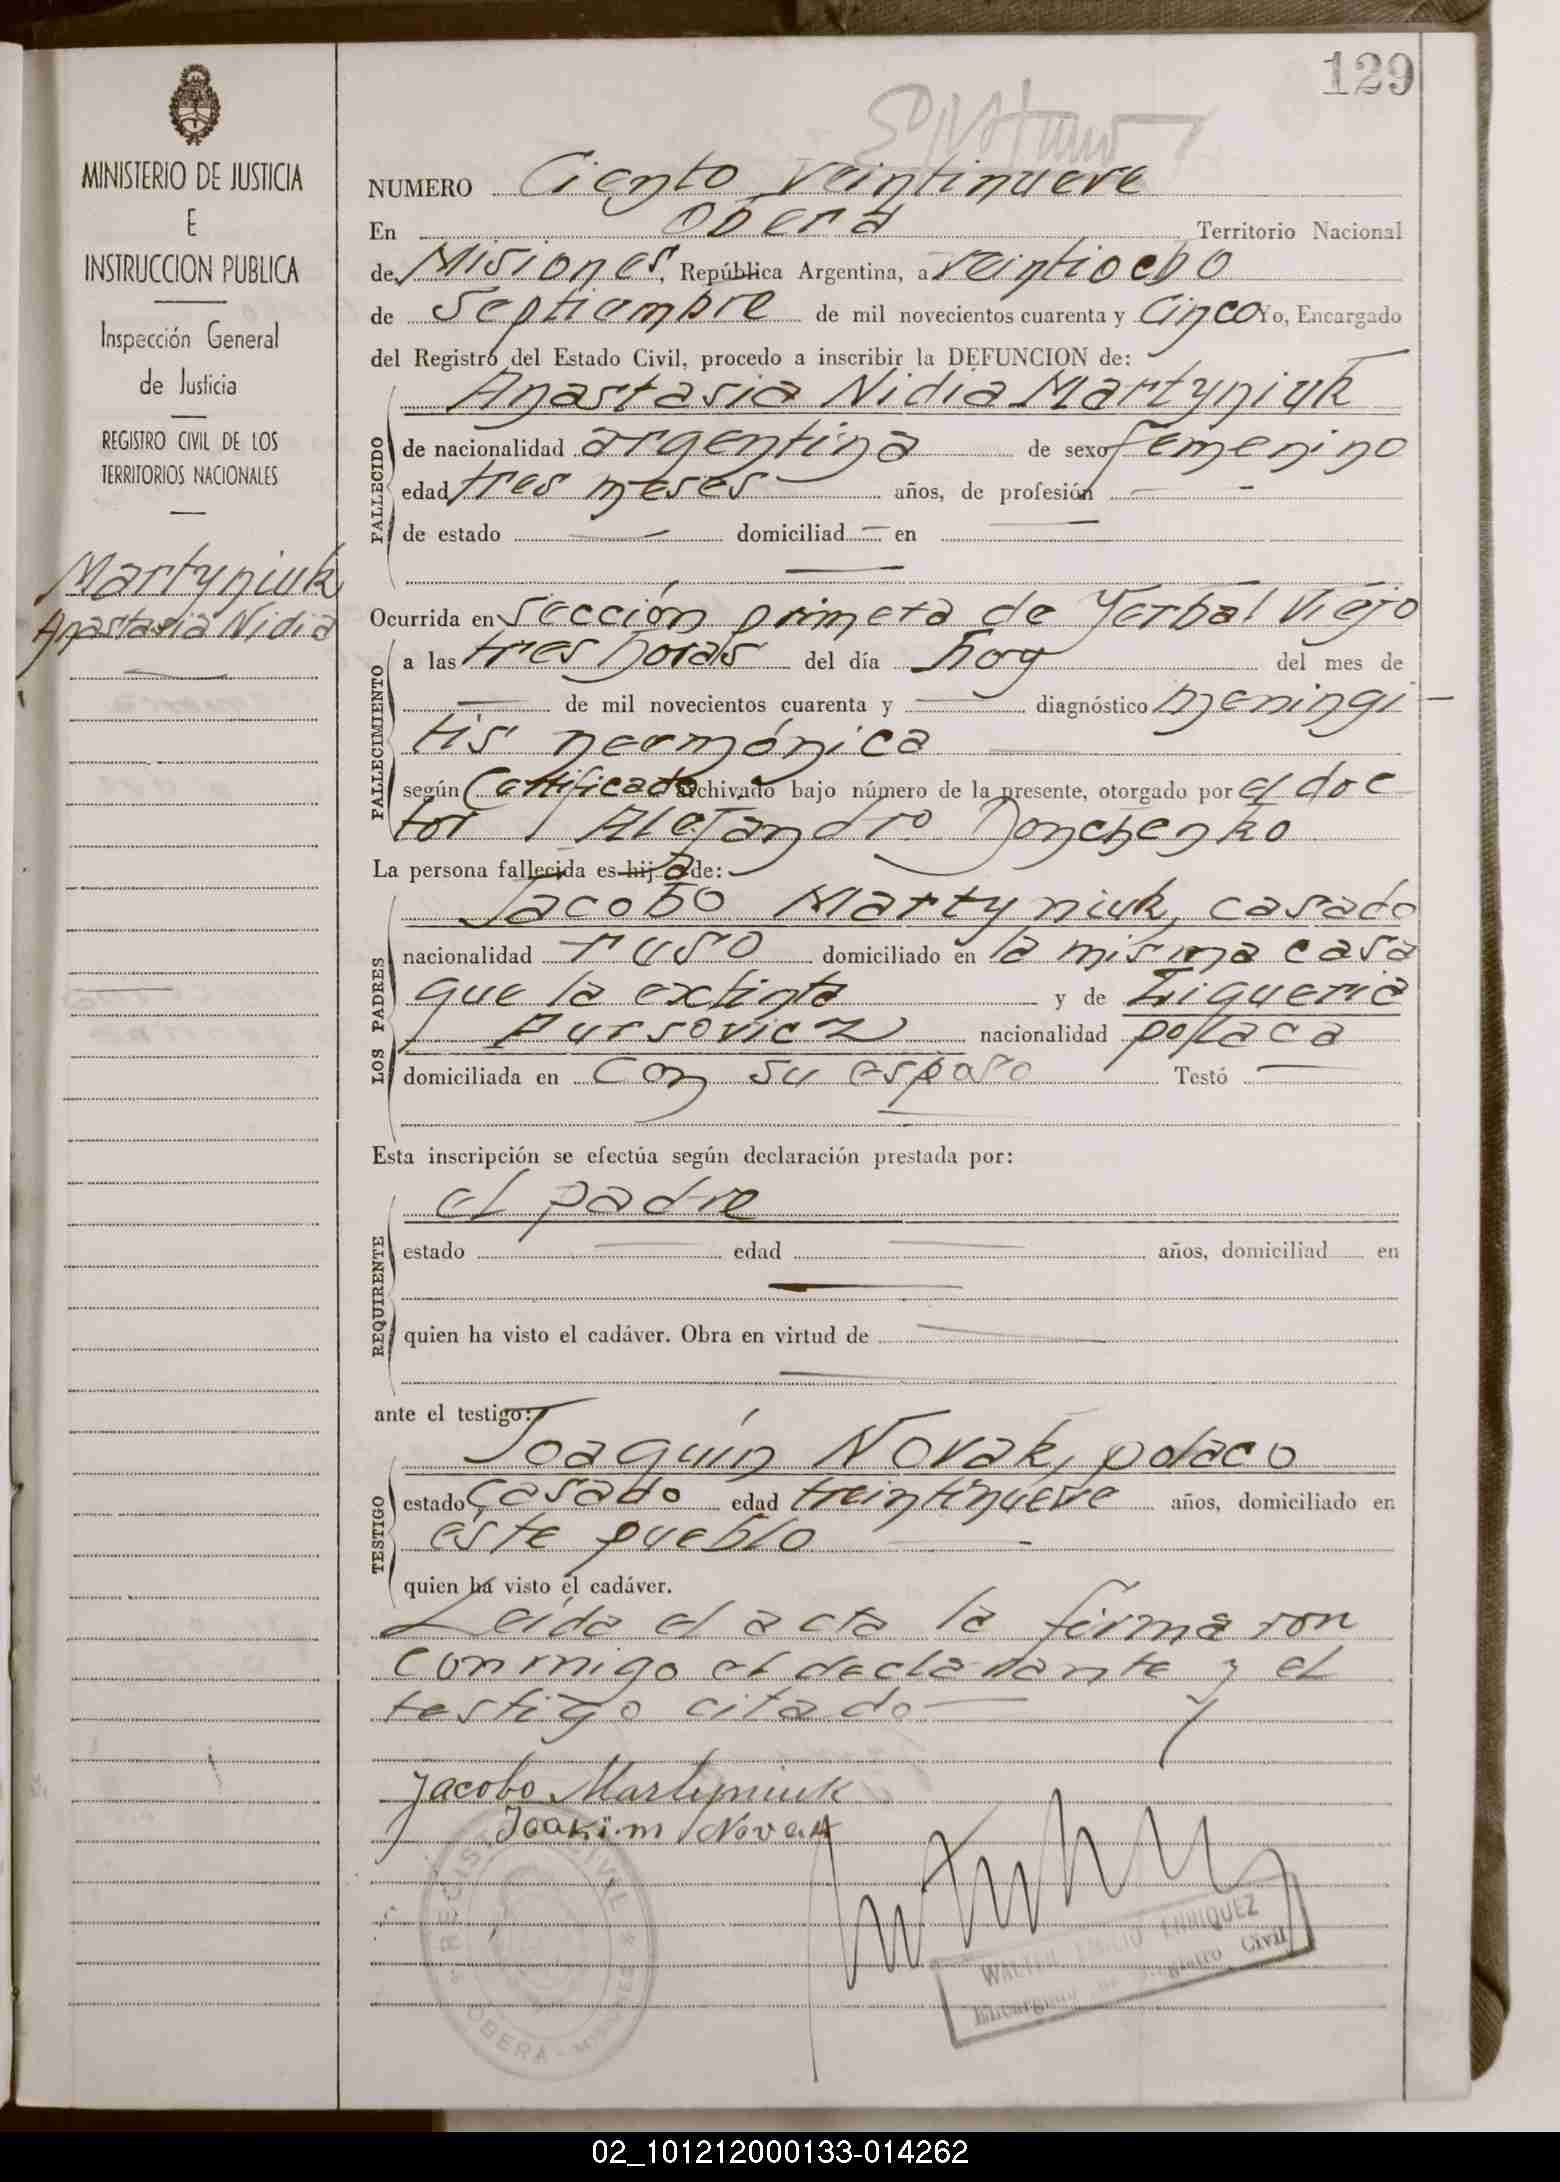 129
MINISTERIO DE JUSTICIA
E
INSTRUCCION PUBLICA
Inspección General
de Justicia
REGISTRO CIVIL DE LOS
TERRITORIOS NACIONALES
Martyniuk
Anastasia Nidia
NUMERO Ciento veintinueve
En Oberá Territorio Nacional
de Misiones, República Argentina, a veintiocho
de Septiembre de mil novecientos cuarenta y cinco Yo, Encargado
del Registro del Estado Civil, procedo a inscribir la DEFUNCION de:
FALLECIDO
Anastasia Nidia Martyniuk
de nacionalidad argentina de sexo femenino
edad tres meses años, de profesión —
de estado — domiciliad — en —
Ocurrida en sección primera de Yerbal Viejo
FALLECIMIENTO
a las tres horas del día hoy del mes de
— de mil novecientos cuarenta y — diagnóstico meningi-
tis neumónica
según Certificado archivado bajo número de la presente, otorgado por el doc
tor Alejandro Donchenko
La persona fallecida es hija de:
LOS PADRES
Jacobo Martyniuk, casado
nacionalidad ruso domiciliado en la misma casa
que la extinta y de Eigueria
Pursovicz nacionalidad polaca
domiciliada en con su esposo Testó —
Esta inscripción se efectúa según declaración prestada por:
REQUIRENTE
el padre
estado — edad — años, domiciliad en
quien ha visto el cadáver. Obra en virtud de —
ante el testigo:
TESTIGO
Joaquín Novak, polaco
estado casado edad treintinueve años, domiciliado en
este pueblo —
quien ha visto el cadáver.
Leída el acta la firmaron
conmigo el declarante y el
testigo citado —
Jacobo Martyniuk
Joakim Novak
REGISTRO CIVIL
OBERA - MISIONES
WALTER EMILIO ENRIQUEZ
Encargado de Registro Civil
02_101212000133-014262